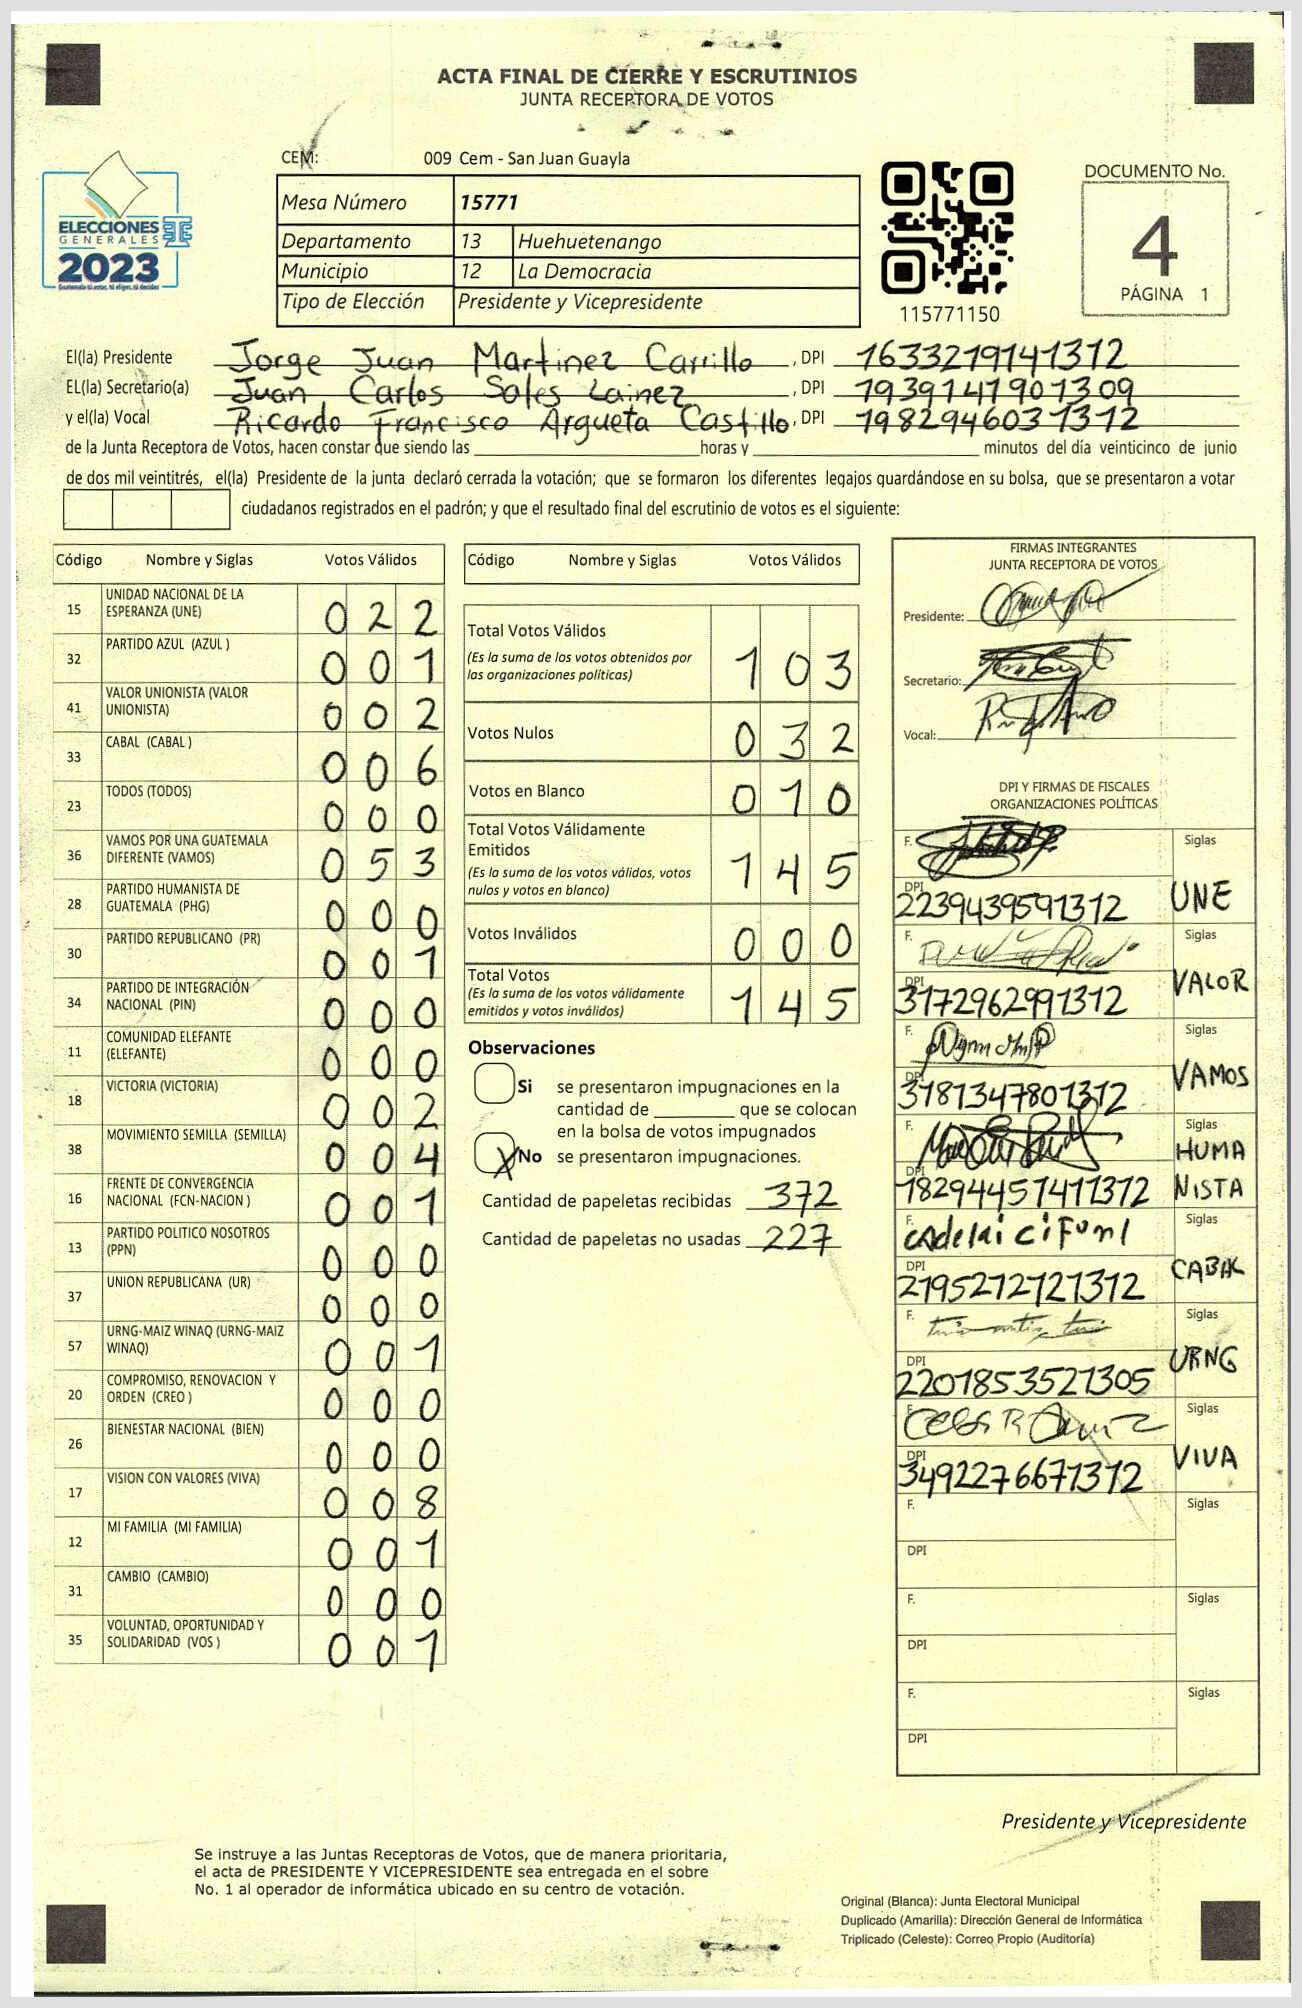 ACTA FINAL DE CIERRE Y ESCRUTINIOS
JUNTA RECEPTORA DE VOTOS
CEM: 009 Cem - San Juan Guayla
ELECCIONES
GENERALES
2023
Mesa Número 15771
Departamento 13 Huehuetenango
Municipio 12 La Democracia
Tipo de Elección Presidente y Vicepresidente
115771150
DOCUMENTO No.
4
PÁGINA 1
El(la) Presidente Jorge Juan Martinez Carrillo, DPI 1633219141312
EL(la) Secretario(a) Juan Carlos Sales Lainez, DPI 1939141901309
y el(la) Vocal Ricardo Francisco Argueta Castillo, DPI 1982946031312
de la Junta Receptora de Votos, hacen constar que siendo las ____ horas y ____ minutos del día veinticinco de junio
de dos mil veintitrés, el(la) Presidente de la junta declaró cerrada la votación; que se formaron los diferentes legajos quardándose en su bolsa, que se presentaron a votar
ciudadanos registrados en el padrón; y que el resultado final del escrutinio de votos es el siguiente:
Código Nombre y Siglas Votos Válidos
15 UNIDAD NACIONAL DE LA ESPERANZA (UNE) 022
32 PARTIDO AZUL (AZUL ) 001
41 VALOR UNIONISTA (VALOR UNIONISTA) 002
33 CABAL (CABAL ) 006
23 TODOS (TODOS) 000
36 VAMOS POR UNA GUATEMALA DIFERENTE (VAMOS) 053
28 PARTIDO HUMANISTA DE GUATEMALA (PHG) 000
30 PARTIDO REPUBLICANO (PR) 001
34 PARTIDO DE INTEGRACIÓN NACIONAL (PIN) 000
11 COMUNIDAD ELEFANTE (ELEFANTE) 000
18 VICTORIA (VICTORIA) 002
38 MOVIMIENTO SEMILLA (SEMILLA) 004
16 FRENTE DE CONVERGENCIA NACIONAL (FCN-NACION ) 001
13 PARTIDO POLITICO NOSOTROS (PPN) 000
37 UNION REPUBLICANA (UR) 000
57 URNG-MAIZ WINAQ (URNG-MAIZ WINAQ) 001
20 COMPROMISO, RENOVACION Y ORDEN (CREO ) 000
26 BIENESTAR NACIONAL (BIEN) 000
17 VISION CON VALORES (VIVA) 008
12 MI FAMILIA (MI FAMILIA) 001
31 CAMBIO (CAMBIO) 000
35 VOLUNTAD, OPORTUNIDAD Y SOLIDARIDAD (VOS ) 001
Código Nombre y Siglas Votos Válidos
Total Votos Válidos 103
(Es la suma de los votos obtenidos por
las organizaciones políticas)
Votos Nulos 032
Votos en Blanco 010
Total Votos Válidamente
Emitidos 145
(Es la suma de los votos válidos, votos
nulos y votos en blanco)
Votos Inválidos 000
Total Votos 145
(Es la suma de los votos válidamente
emitidos y votos inválidos)
Observaciones
Si se presentaron impugnaciones en la
cantidad de ____ que se colocan
en la bolsa de votos impugnados
X No se presentaron impugnaciones.
Cantidad de papeletas recibidas 372
Cantidad de papeletas no usadas 227
FIRMAS INTEGRANTES
JUNTA RECEPTORA DE VOTOS
Presidente:
Secretario:
Vocal:
DPI Y FIRMAS DE FISCALES
ORGANIZACIONES POLÍTICAS
F. Siglas
DPI 2239439591312 UNE
F. Siglas
DPI 3172962991312 VALOR
F. Siglas
DPI 3181347801312 VAMOS
F. Siglas HUMA
DPI 18294457411312 NISTA
F. Siglas
DPI 2195212121312 CABAL
F. Siglas
DPI 2201853521305 URNG
F. Siglas
DPI 3492276671312 VIVA
F. Siglas
DPI
F. Siglas
DPI
F. Siglas
DPI
Presidente y Vicepresidente
Se instruye a las Juntas Receptoras de Votos, que de manera prioritaria,
el acta de PRESIDENTE Y VICEPRESIDENTE sea entregada en el sobre
No. 1 al operador de informática ubicado en su centro de votación.
Original (Blanca): Junta Electoral Municipal
Duplicado (Amarilla): Dirección General de Informática
Triplicado (Celeste): Correo Propio (Auditoría)